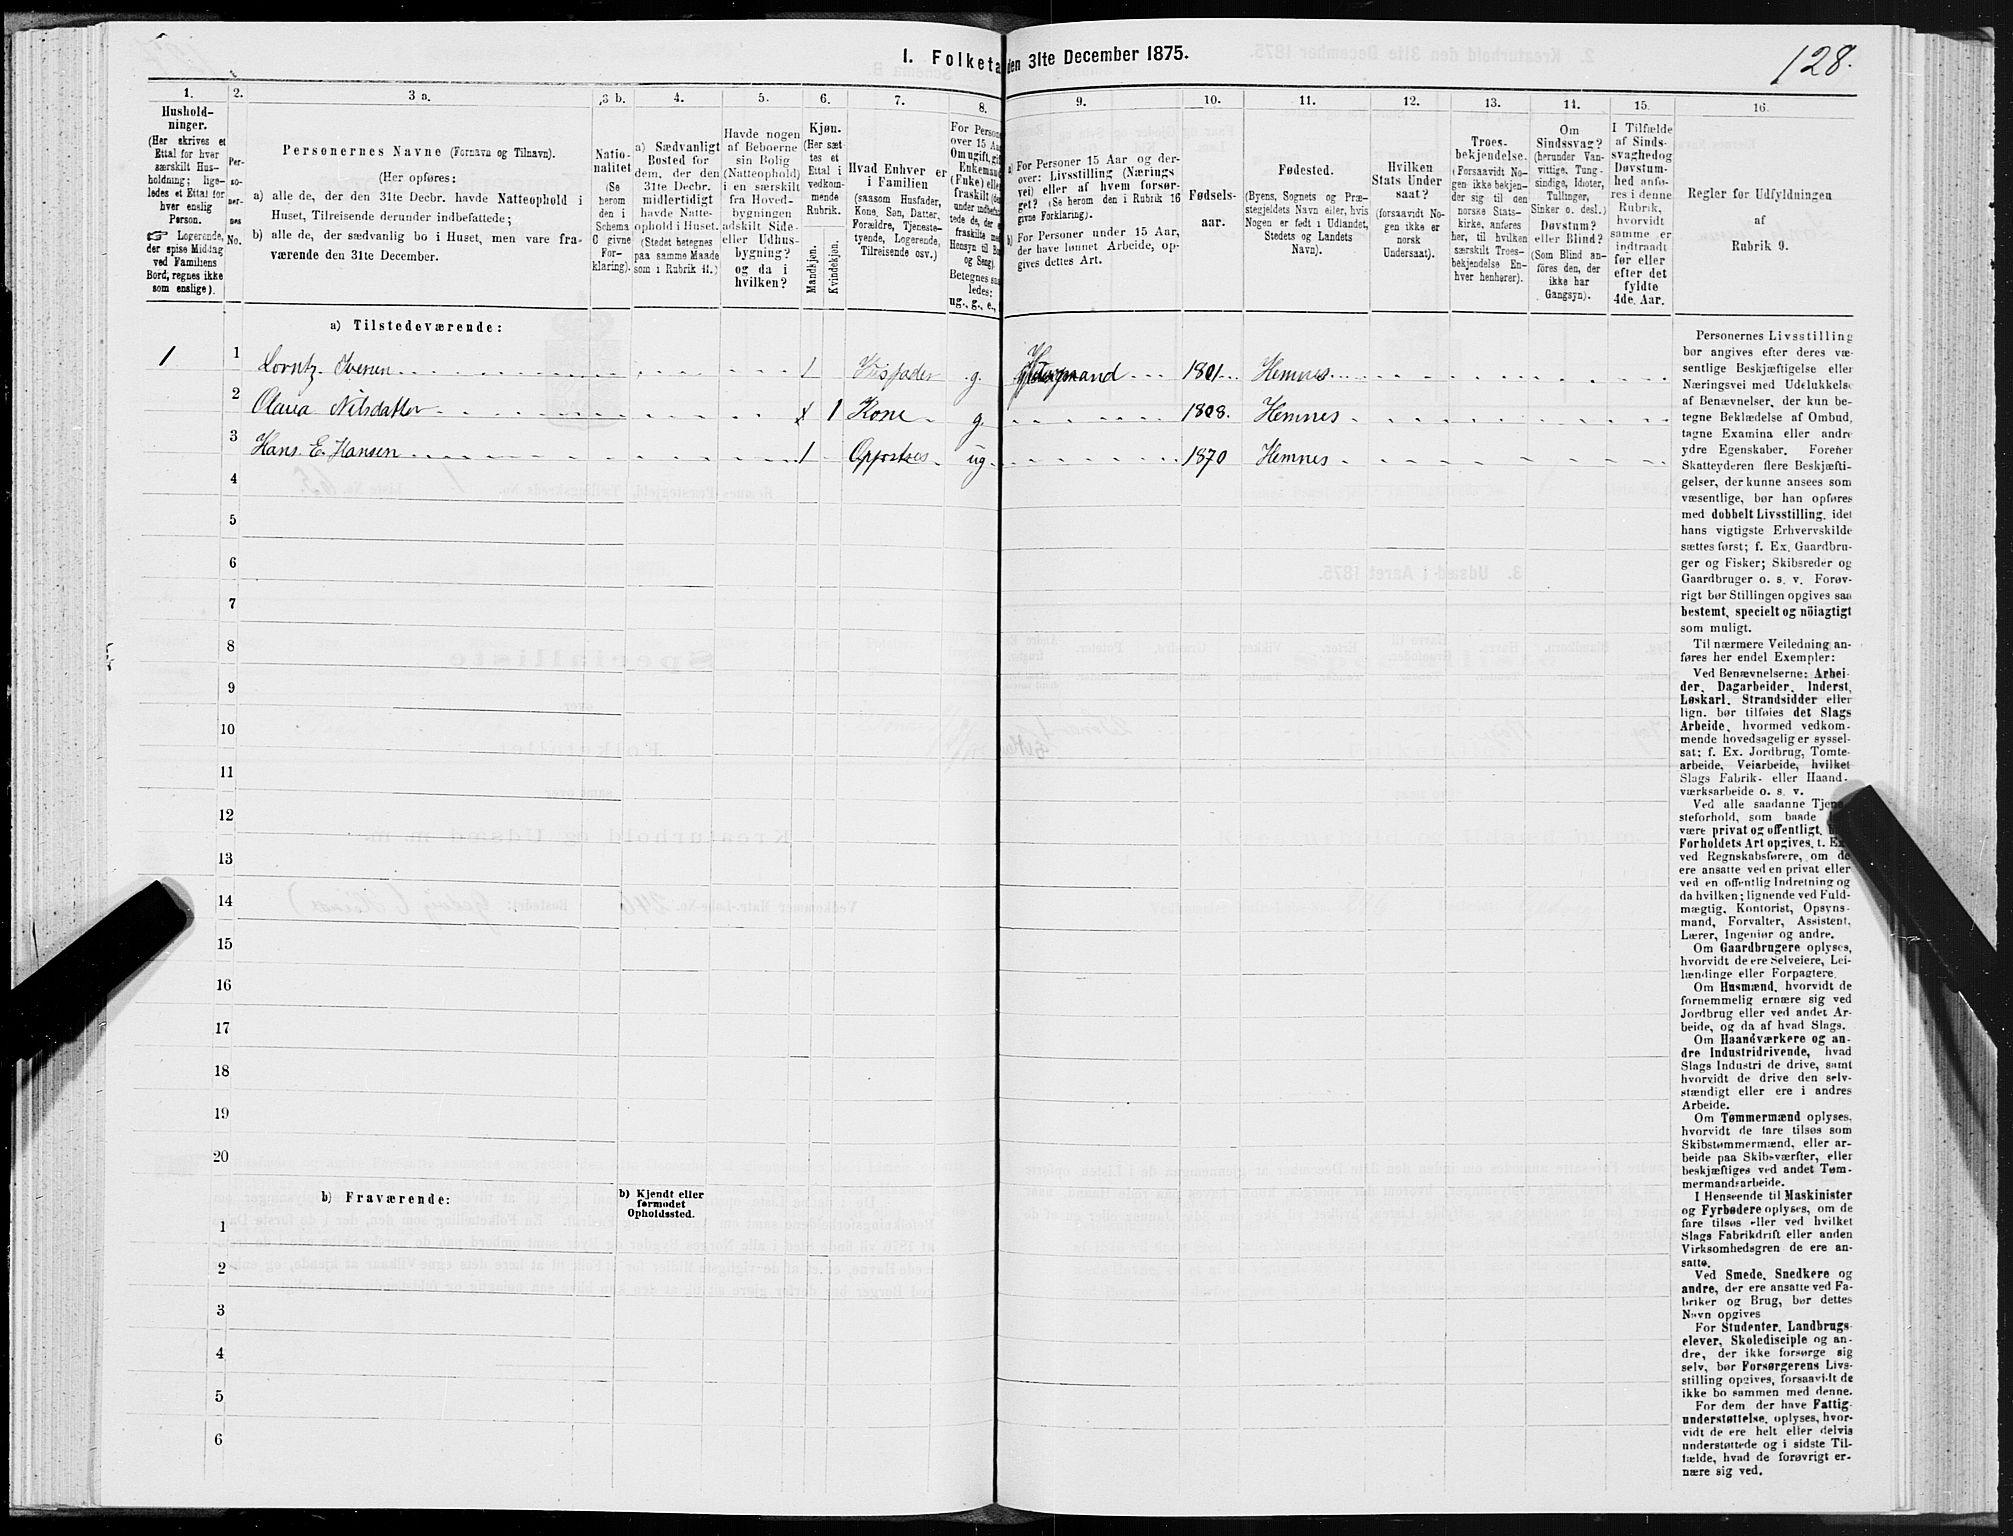 128.
1. Folketa den 31te December 1875.
1. 2. 3 a. 3 b. 4. 5. 6. 7. 8. 9. 10. 11. 12. 13. 14. 15. 16.
Hushold-
ninger.
(Her skrives et
Ettal for hver
særskilt Hus-
holdning; lige-
ledes et Ettal for
hver enslig
Person.
☞ Logerende,
der spise Middag
ved Familiens
Bord, regnes ikke
som enslige).
Per-
so-
ner-
nes
No.
Personernes Navne (Fornavn og Tilnavn).
(Her opføres:
a) alle de, der den 31te Decbr. havde Natteophold i
Huset, Tilreisende derunder indbefattede;
b) alle de, der sædvanlig bo i Huset, men vare fra-
værende den 31te December.
Natio-
nalitet
(Se
herom
den i
Schema
C givne
For-
klaring).
a) Sædvanligt
Bosted for
dem, der den
31te Decbr.
midlertidigt
havde Natte-
ophold i Huset.
(Stedet betegnes
paa samme Maade
som i Rubrik 11.)
Havde nogen
af Beboerne
sin Bolig
(Natteophold)
i en særskilt
fra Hoved-
bygningen
adskilt Side-
eller Udhus-
bygning?
og da i
hvilken?
Kjøn.
(Her sæt-
tes et
Ettal i
vedkom-
mende
Rubrik.
Mandkjøn.
Kvindekjøn.
Hvad Enhver er
i Familien
(saasom Husfader,
Kone, Søn, Datter,
Forældre, Tjeneste-
tyende, Logerende,
Tilreisende osv.)
For Persone
over 15 Aa
Om ugift, gif
Enkemand
(Enke) elle
fraskilt (de
under indbefat-
tede de, der e
fraskilte me
Hensyn til Bo
og Seng).
Betegnes saa
ledes:
ug., g., e.,
a) For Personer 15 Aar og der-
over: Livsstilling (Nærings
vei) eller af hvem forsør-
get? (Se herom den i Rubrik 16
givne Forklaring).
b) For Personer under 15 Aar,
der have lønnet Arbeide, op-
gives dettes Art.
Fødsels-
aar.
Fødested.
(Byens, Sognets og Præ-
stegjeldets Navn eller, hvis
Nogen er født i Udlandet,
Stedets og Landets
Navn).
Hvilken
Stats Under
saat?
(forsaavidt No-
gen ikke er
norsk
Undersaat).
Troes-
bekjendelse.
(Forsaavidt No-
gen ikke bekjen-
der sig til den
norske Stats-
kirke, anføres
her, til hvilken
særskilt Troes-
bekjendelse En-
hver henhører).
Om
Sindssvag?
(herunder Van-
vittige, Tung-
sindige, Idioter,
Tullinger,
Sinker o. desl.)
Døvstum?
eller Blind?
(Som Blind an-
føres den, der
ikke har
Gangsyn).
I Tilfælde
af Sinds-
svaghedog
Døvstum-
hed anfø-
res i denne
Rubrik,
hvorvidt
samme er
indtraadt
før eller
efter det
fyldte
4de. Aar.
Regler før Udfyldningen
af
Rubrik 9.
a) Tilstedeværende:
1 1 Lorntz Iversen 1 Husfader g. 1801 Hemnes
2 Olava Nilsdatter 1 Kone g. 1808. Hemnes
3 Hans E. Hansen 1 ug 1870 Hemnes
4
5
6
7
8
9
10
11
12
13
14
15
16
17
18
19
20
b) Fraværende:
b) Kjendt eller
formodet
Opholdssted.
1
2
3
4
5
6
Personernes Livsstilling
bør angives efter deres væ-
sentlige Beskjæftigelse eller
Næringsvei med Udelukkelse
af Benævnelser, der kun be-
tegne Beklædelse af Ombud,
tagne Examina eller andre
ydre Egenskaber. Forener
Skatteyderen flere Beskjæfti-
gelser, der kunne ansees som
væsentlige, bør han opføres
med dobbelt Livsstilling, idet
hans vigtigste Erhvervskilde
sættes først; f. Ex. Gaardbru-
ger og Fisker; Skibsreder og
Gaardbruger o. s. v. Forøv-
rigt bør Stillingen opgives saa
bestemt, specielt og nöiagtigt
som muligt.
Til nærmere Veiledning an-
føres her endel Exempler:
Ved Benævnelserne: Arbei-
der, Dagarbeider, Inderst,
Løskarl, Strandsidder eller
lign. bør tilføies det Slags
Arbeide, hvormed vedkom-
mende hovedsagelig er syssel-
sat; f. Ex. Jordbrug, Tomte-
arbeide, Veiarbeide, hvilket
Slags Fabrik- eller Haand-
værksarbeide o. s. v.
Ved alle saadanne Tjene
steforhold, som baade
være privat og offentligt,
Forholdets Art opgives, t. Ex
ved Regnskabsførere, om de
ere ansatte ved en privat eller
ved en offentlig Indretning og
da hvilken; lignende ved Fuld-
mægtig, Kontorist, Opsyns-
mand, Forvalter, Assistent,
Lærer, Ingeniør og andre.
Om Gaardbrugere oplyses,
hvorvidt de ere Selveiere, Lei-
lændinge eller Forpagtere.
Om Husmænd, hvorvidt de
fornemmelig ernære sig ved
Jordbrug eller ved andet Ar-
beide, og da af hvad Slags.
Om Haandværkere og an-
dre Industridrivende, hvad
Slags Industri de drive, samt
hvorvidt de drive den selv-
stændigt eller ere i andres
Arbeide.
Om Tømmermænd oplyses,
hvorvidt de fare tilsøs som
Skibstømmermænd, eller ar-
beide paa Skibsværfter, eller
beskjæftiges ved andet Tøm-
mermandsarbeide.
I Henseende til Maskinister
og Fyrbødere oplyses, om de
fare tilsøs eller ved hvilket
Slags Fabrikdrift eller anden
Virksomhedsgren de ere an-
satte.
Ved Smede, Snedkere og
andre, der ere ansatte ved Fa-
briker og Brug, bør dettes
Navn opgives
For Studenter, Landbrugs
elever, Skoledisciple og an-
dre, der ikke forsørge sig
selv, bør Forsørgerens Livs-
stilling opgives, forsaavidt de
ikke bo sammen med denne.
For dem der have Fattig
understøttelse, oplyses, hvor-
vidt de ere helt eller delvis
understøttede og i sidste Til-
fælde, hvad de forøvrigt er-
nære sig ved.